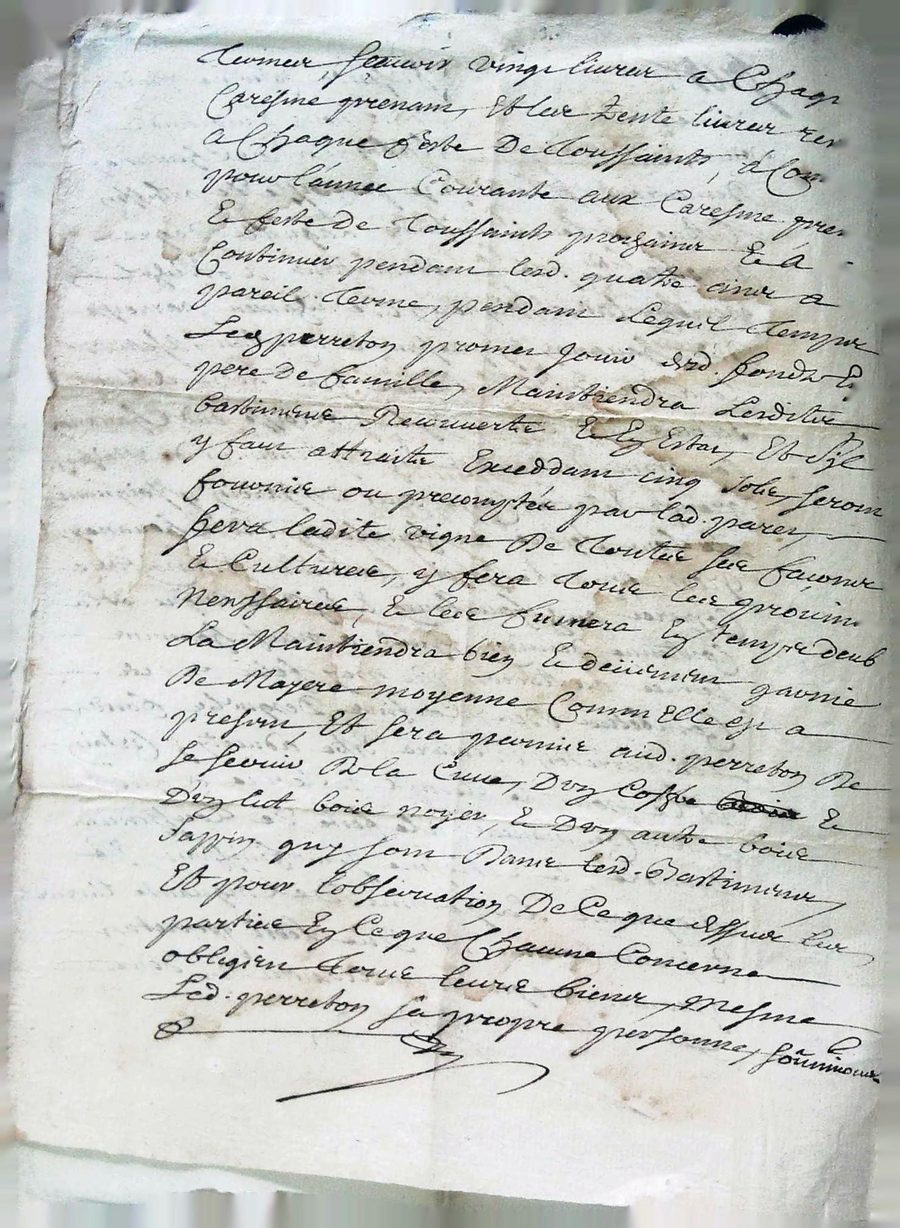 Termes, scauoir vingt liures a Chaq
Caresme prenant, Et les trente liures res
a Chaque feste De Toussaints, a Com
pour l'annee Courante aux Caresme pren
Et feste de Toussaints prochaines Et A
Continuer pendant lesd. quatre annes a
pareil terme, pendant Lequel Temps
Led perreton promet Jouir desd. fonds En
pere de famille, Maintiendra Lesdits
bastiments Recouverts Et En Estat, Et S'yl
y faut attraits Exceddant cinq sols, seront
fournis ou precomptés par lad. parey,
fera ladite vigne De toutes ses façons
Et Cultures, y fera tous les prouins
Necessaires, Et les fumera En temps deub
La Maintiendra bien Et deüement garnie
De Mayere moyenne Comm'Elle est a
present, Et sera permis aud. perreton De
se seruir De la Cuue, D'un Coffre Et
D'un lict bois noyer, Et D'un autre bois
Sappin quy sont Dans lesd. Bastiments,
Et pour l'obseruation De Ce que dessus les
parties En Ce que Chacune Concerne
obligent tous leurs biens, Mesme
Led. perreton sa propre personne, soûmissions
&